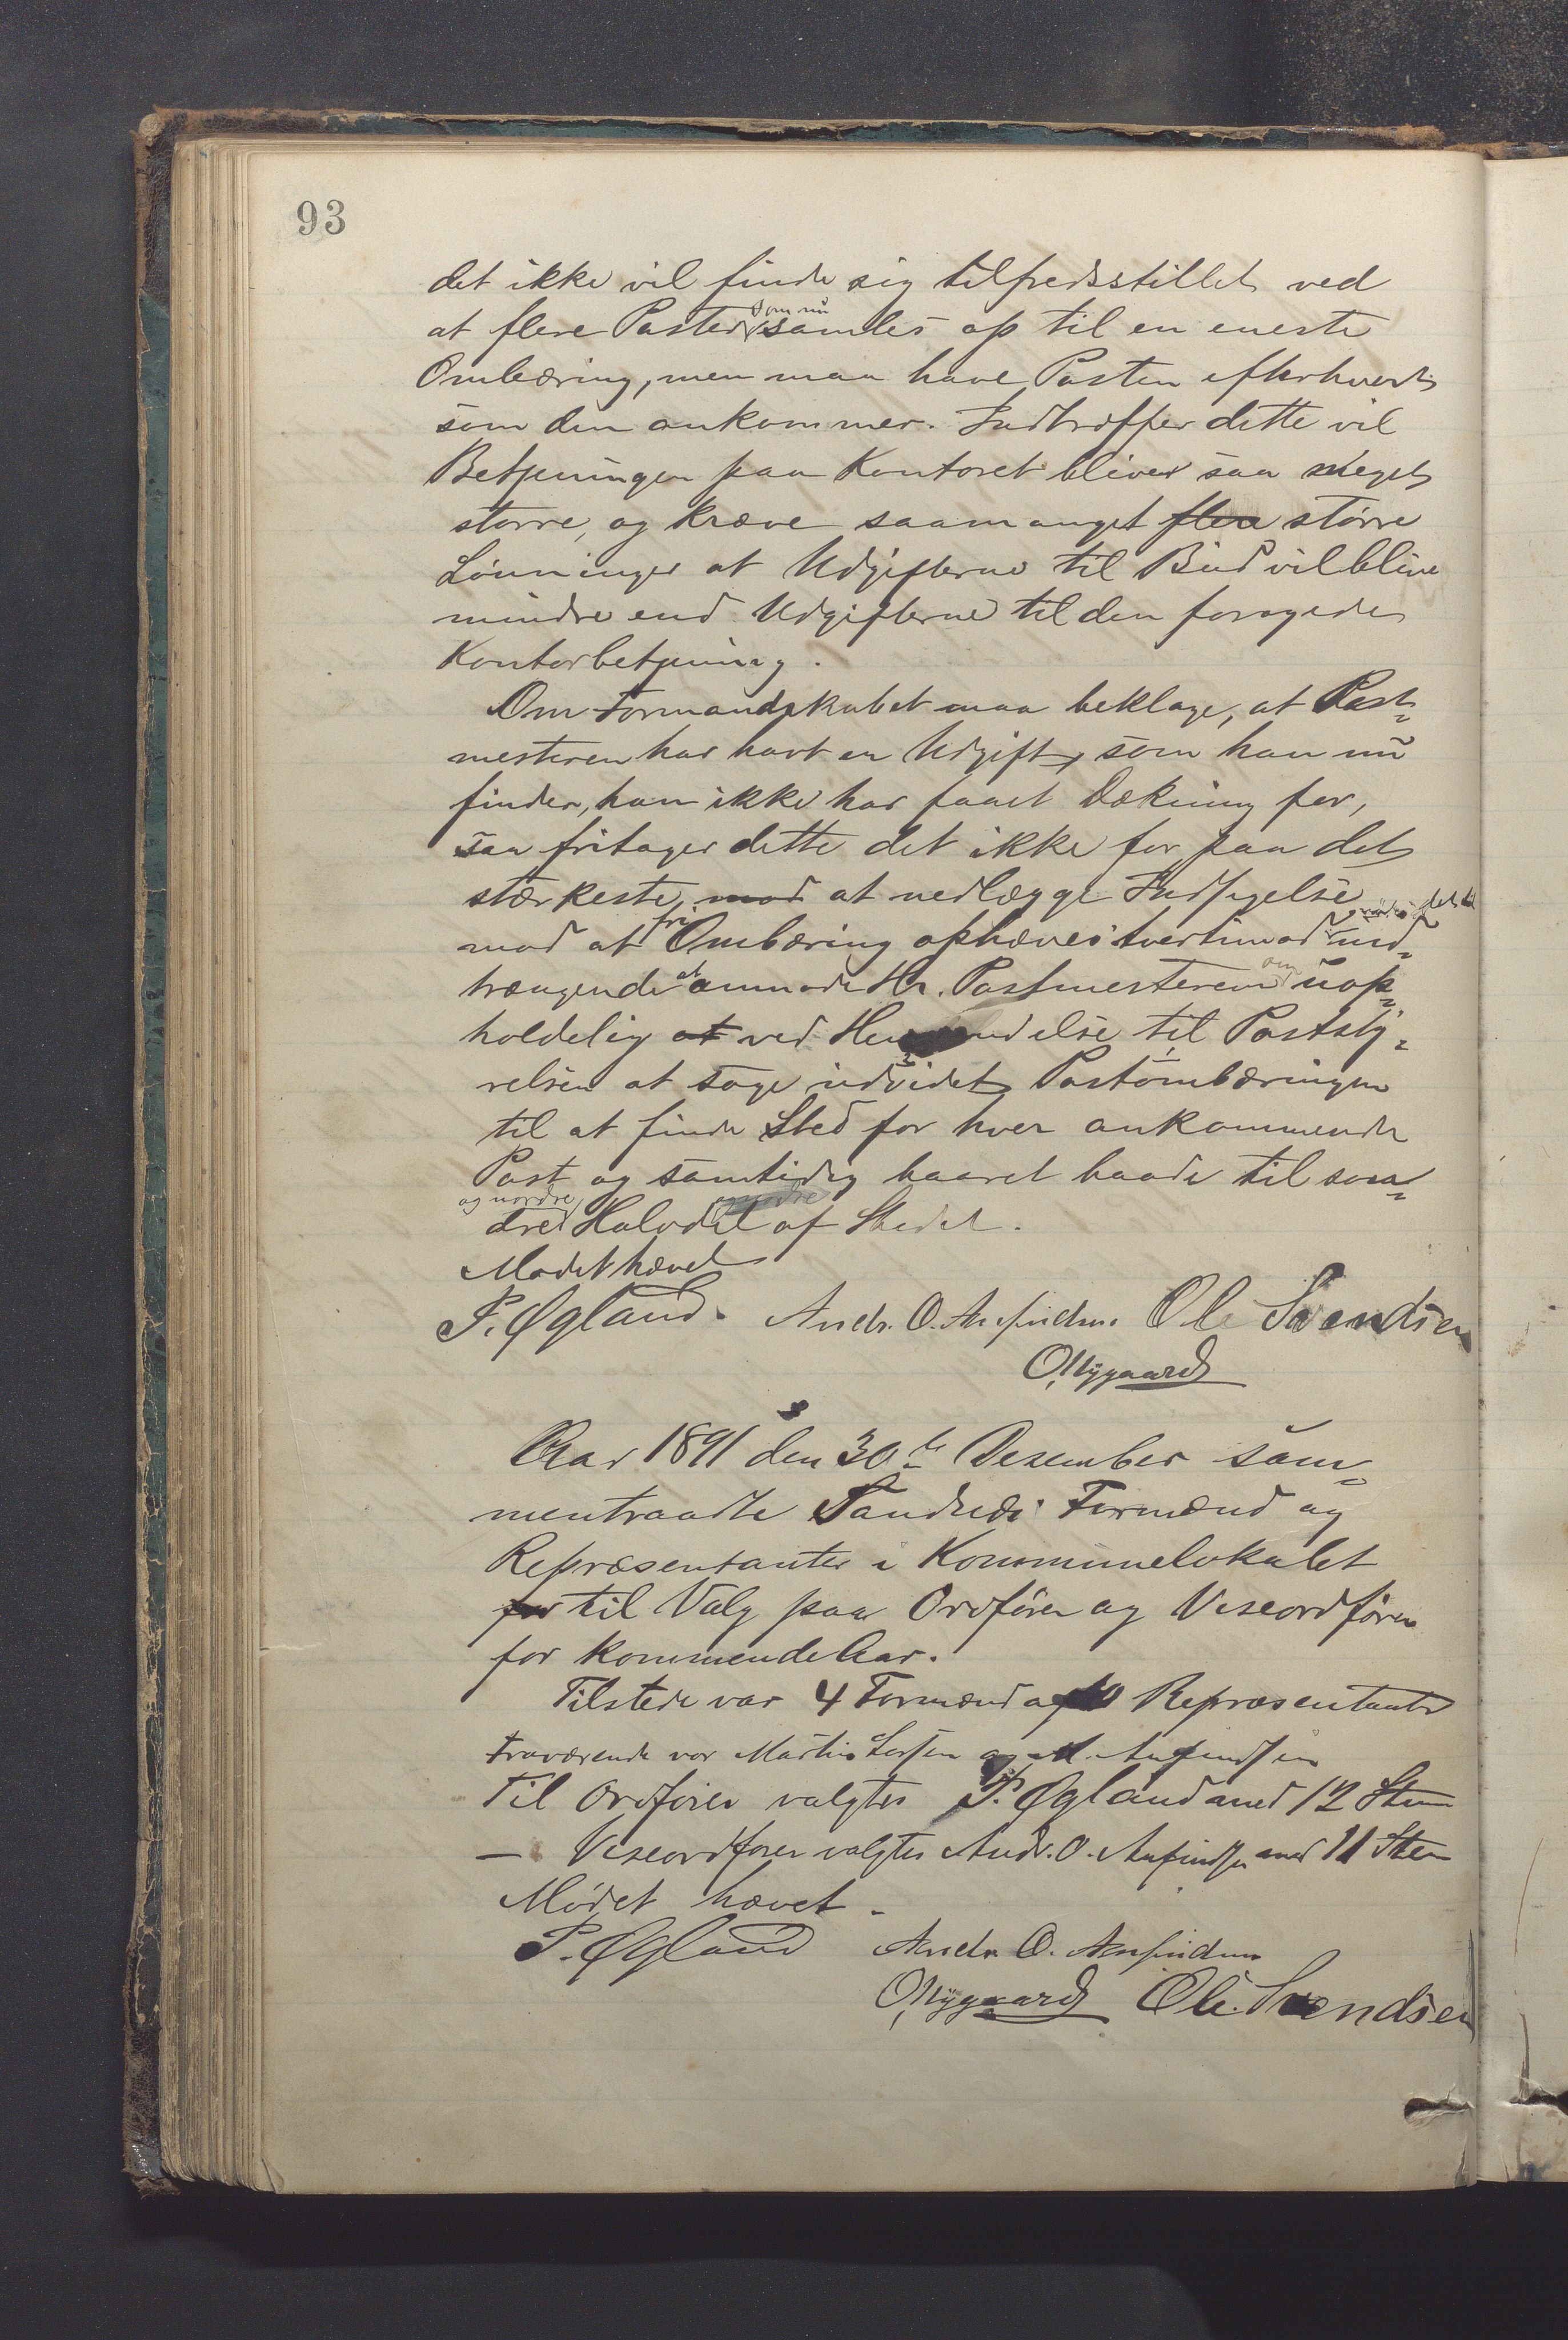 93
det ikke vil finde sig tilfredsstillet ved
at flere Poster som nu samles op til en eneste
Ombæring, men maa have Posten efterhvert
som den ankommer. Indtræffer dette vil
Betjeningen paa Kontoret bliver saa meget
større, og kræve saameget flere større
Lønninger at Udgifterne til Bud vil blive
mindre end Udgifterne til den forøgede
Kontorbetjening.
Om Formandskabet maa beklage, at Post-
mesteren har havt en Udgift, som han nu
finder, han ikke har faaet Dækning for,
saa fritager dette det ikke for paa det
stærkeste mod at nedlægge Indsigelse
mod at fri Ombæring ophæves tvertimod ind-
trængende at anmode Hr. Postmesteren om uop-
holdelig at ved Henvendelse til Poststy-
relsen at søge udvidet Postombæringen
til at finde Sted for hver ankommende
Post og samtidig baaret baade til søn-
og nordre
dre Halvdel af Stedet.
Mødet hævet
P. Øgland. Andr. O. Anfindsen Ole Svendsen
O. Nygaard
Aar 1891 den 30te Desember sam-
mentraadte Sandnes Formænd og
Repræsentanter i Kommunelokalet
for til Valg paa Ordfører og Viseordfører
for kommende Aar.
Tilstede var 4 Formænd og 10 Repræsentanter
Fraværende var Martin Larsen og M. Anfindsen
Til Ordfører valgtes P. Øgland med 12 Stem
— Viseordfører valgtes Andr. O. Anfindsen med 11 Stem
Mødet hævet.
P. Øgland Andr. O. Anfindsen
O. Nygaard Ole Svendsen